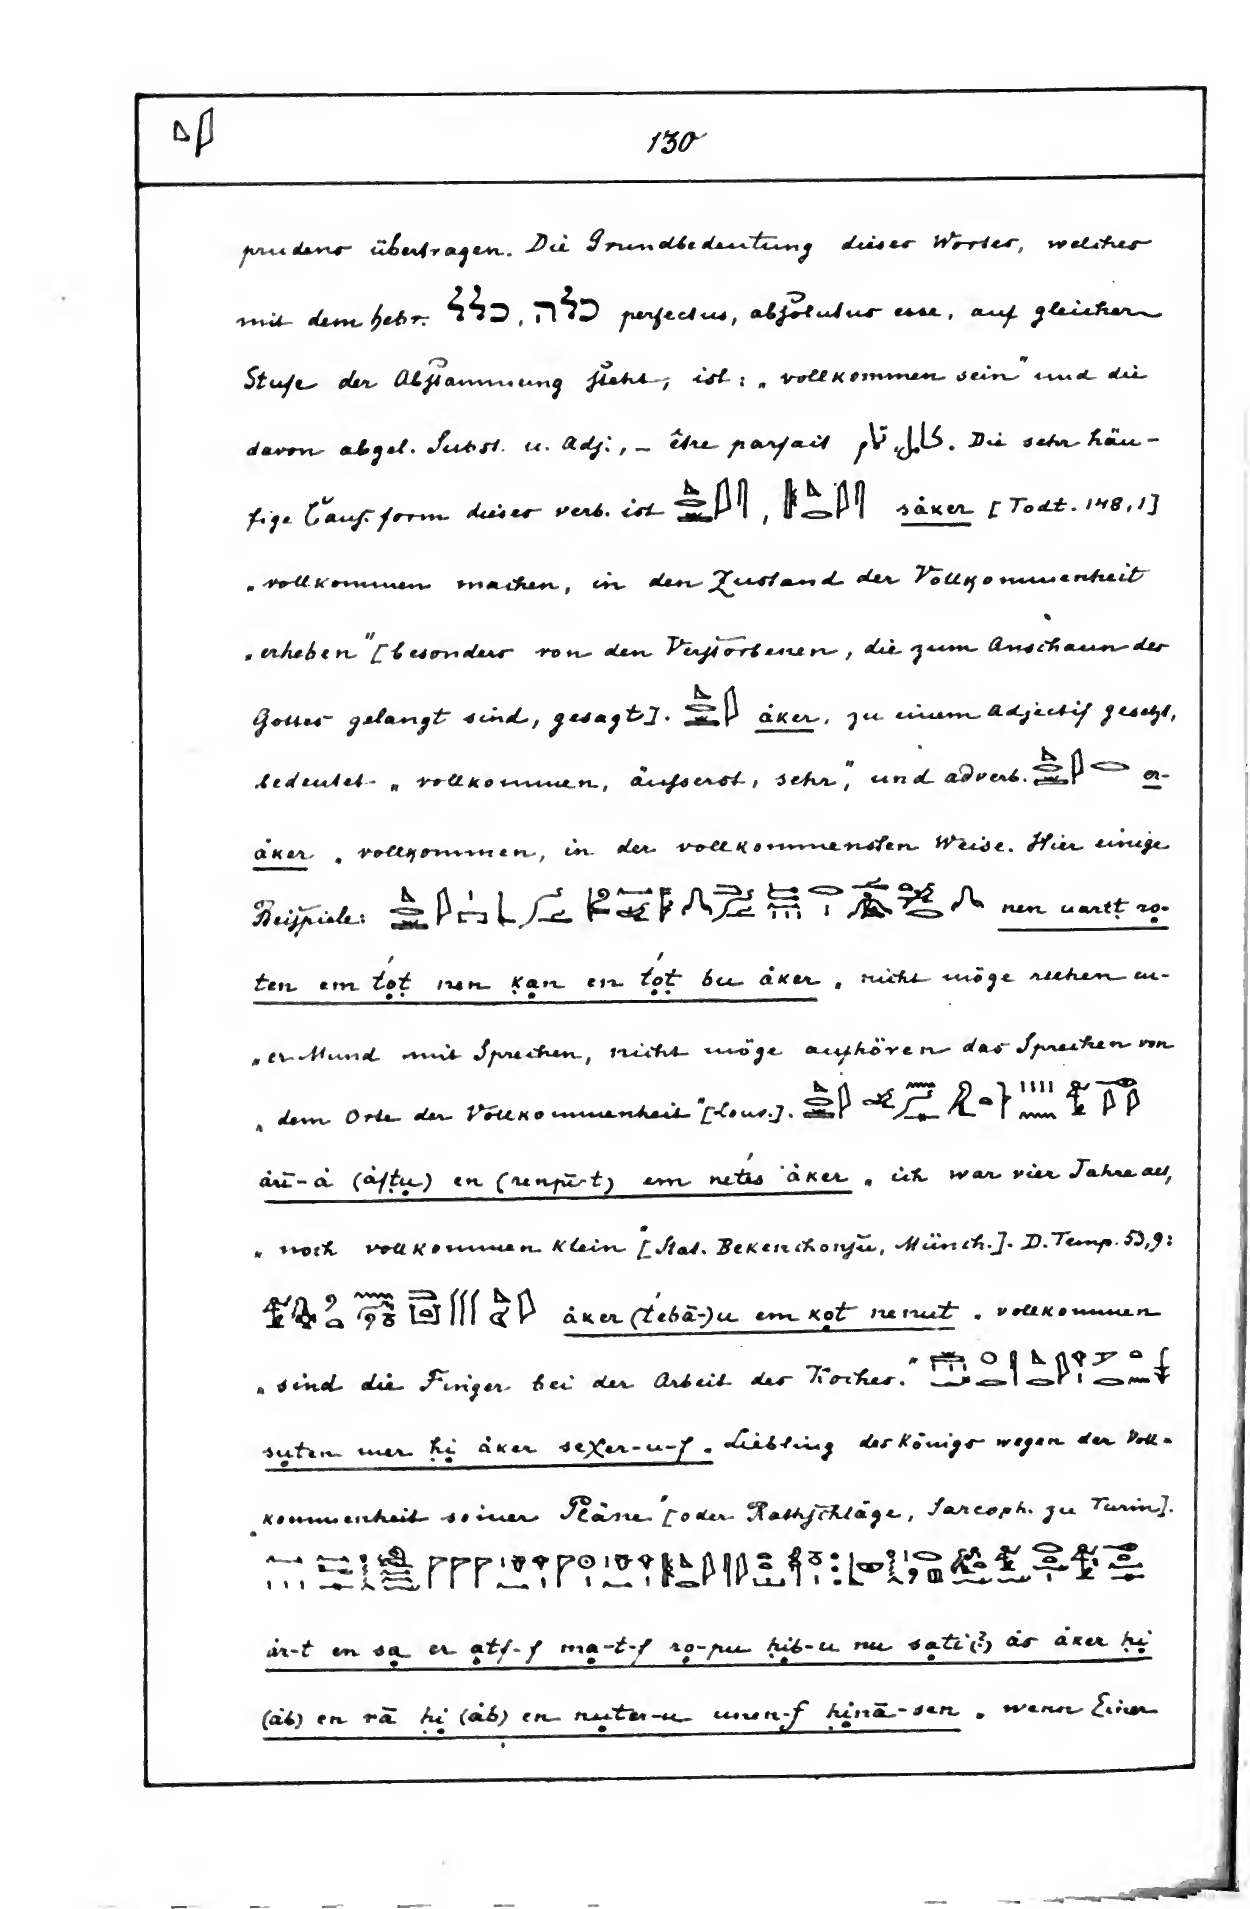 130
prudens übertragen. Die Grundbedeutung dieses Wortes, welches
mit dem hebr. כלה, כלל perfectus, absolutus esse, auf gleicher
Stufe der Abstammung steht, ist: „vollkommen sein" und die
davon abgel. Subst. u. Adj., – être parfait كامل, تام. Die sehr häu-
fige Causf. form dieses verb. ist , sȧker [Todt. 148,1]
„vollkommen machen, in den Zustand der Vollkommenheit
„erheben" [besonders von den Verstorbenen, die zum Anschaun des
Gottes gelangt sind, gesagt]. ȧker, zu einem Adjectif gesetzt,
bedeutet „vollkommen, äusserst, sehr", und adverb. er-
ȧker „vollkommen, in der vollkommensten Weise. Hier einige
Beispiele: nen uartt ro-
ten em tot nen kan en tot bu ȧker „nicht möge ruhen eu-
„er Mund mit Sprechen, nicht möge aufhören das Sprechen von
„dem Orte der Vollkommenheit" [Louv.].
ȧū-ȧ (ȧftu) en (renpū-t) em netés ȧker „ich war vier Jahre alt,
„noch vollkommen klein [Stat. Bekenchonsū, Münch.]. D. Temp. 53,9:
ȧker (tebā-)u em kot nenut „vollkommen
„sind die Finger bei der Arbeit des Koches."
suten mer hi ȧker seχer-u-f „Liebling des Königs wegen der Voll-
„kommenheit seiner Pläne" [oder Rathschläge, Sarcoph. zu Turin].
ȧr-t en sa er atf-f ma-t-f ro-pu hib-u nu sati(?) ȧs ȧker hi
(ȧb) en rā hi (ȧb) en nuter-u unen-f hinā-sen „wenn Einer